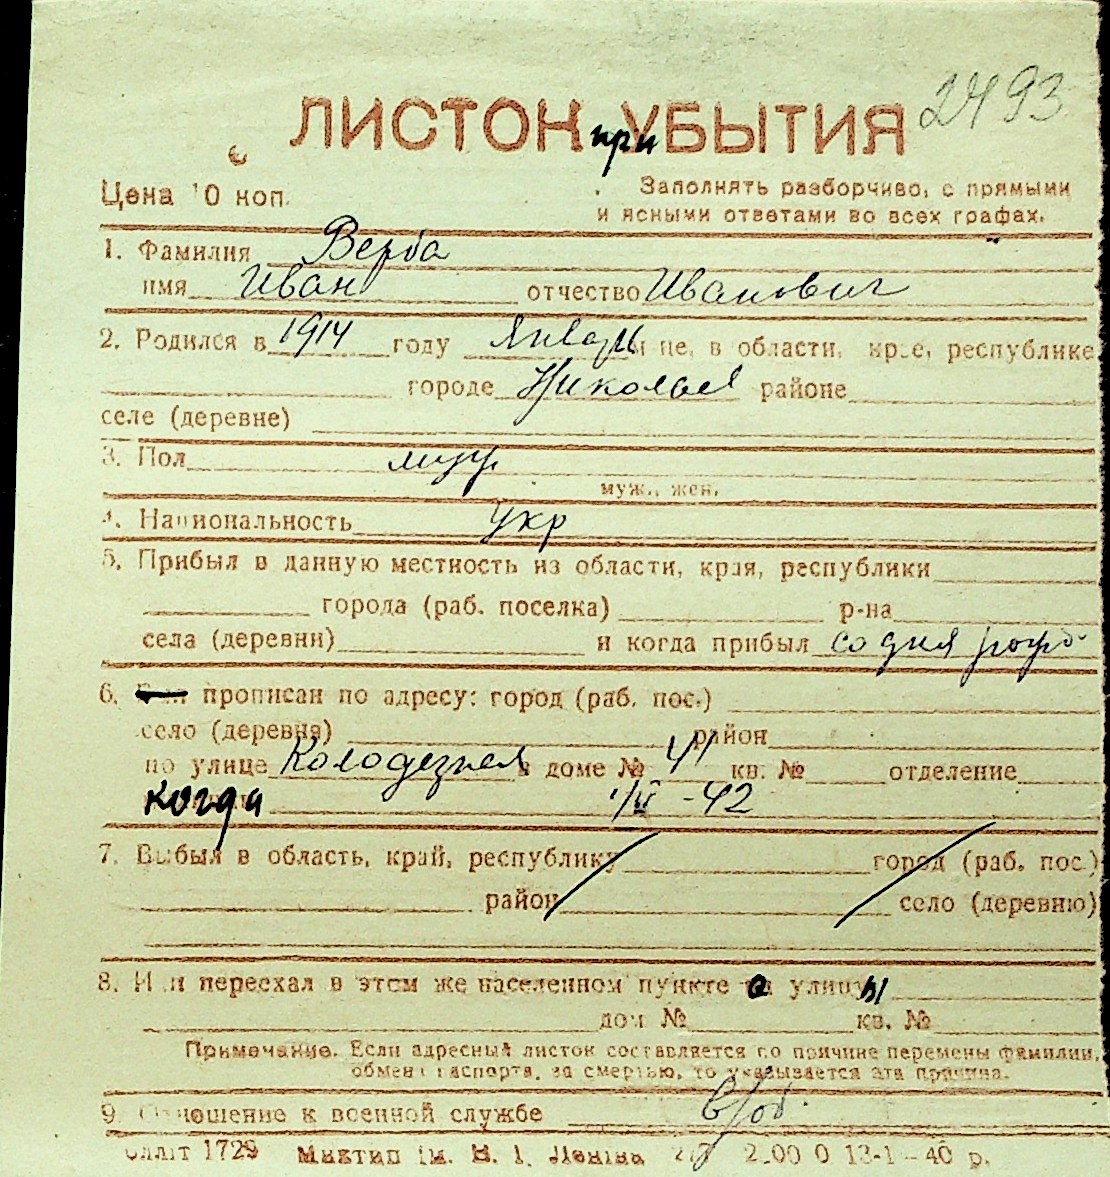 2493
ЛИСТОК при УБЫТИЯ
Цена 10 коп.
Заполнять разборчиво, с прямыми
и ясными ответами во всех графах.
1. Фамилия Верба
имя Иван отчество Иванович
2. Родился в 1914 году январь м це, в области, крае, республике
городе Николаев районе
селе (деревне)
3. Пол муж
муж., жен.
4. Национальность укр
5. Прибыл в данную местность из области, края, республики
города (раб. поселка) р-на
села (деревни) и когда прибыл со дня рожд
6. прописан по адресу: город (раб. пос.)
село (деревня) район
по улице Колодезная в доме № 41 кв. № отделение
когда -42
7. Выбыл в область, край, республику город (раб. пос.)
район село (деревню)
8. Или переехал в этом же населенном пункте с улицы
дом № кв. №
Примечание. Если адресный листок составляется по причине перемены фамилии,
обмена паспорта, за смертью, то указывается эта причина.
9 Отношение к военной службе в/об.
Оллiт 1729 Миктип iм. В. I. Леніна 13-1-40 р.